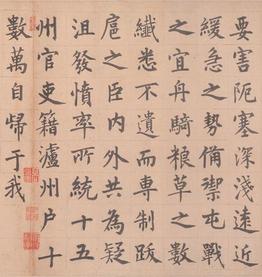 要害阨塞深淺遠近
緩急之勢備禦屯戰
之宜舟騎粮草之數
纖悉不遺而專制跋
扈之臣内外共為疑
沮發憤率所統十五
州官吏籍瀘州户十
數萬自歸于我